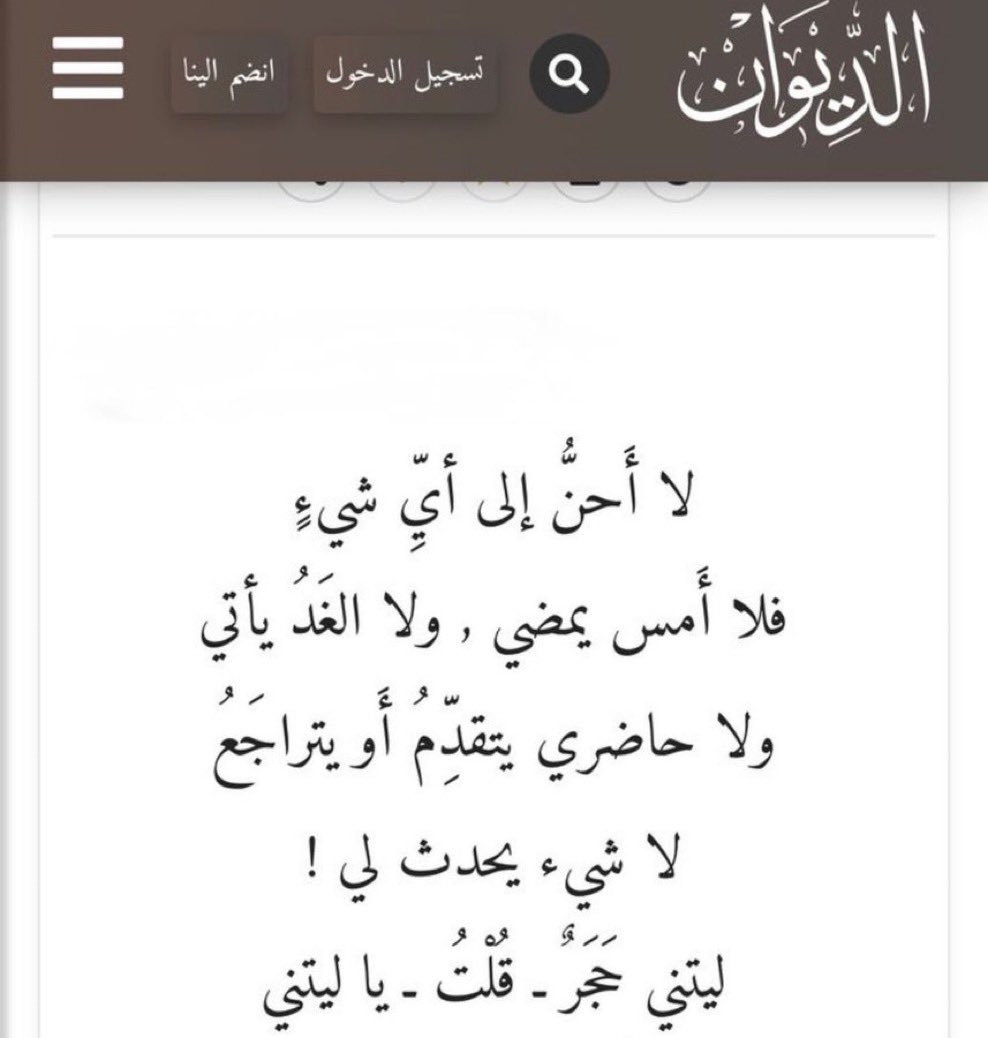 الدِّيوَان
تسجيل الدخول
انضم الينا
لا أَحنُّ إلى أيِّ شيءٍ
فلا أَمس يمضي , ولا الغَدُ يأتي
ولا حاضري يتقدِّمُ أَو يتراجَعُ
لا شيء يحدث لي !
ليتني حَجَرٌ ـ قُلْتُ ـ يا ليتني